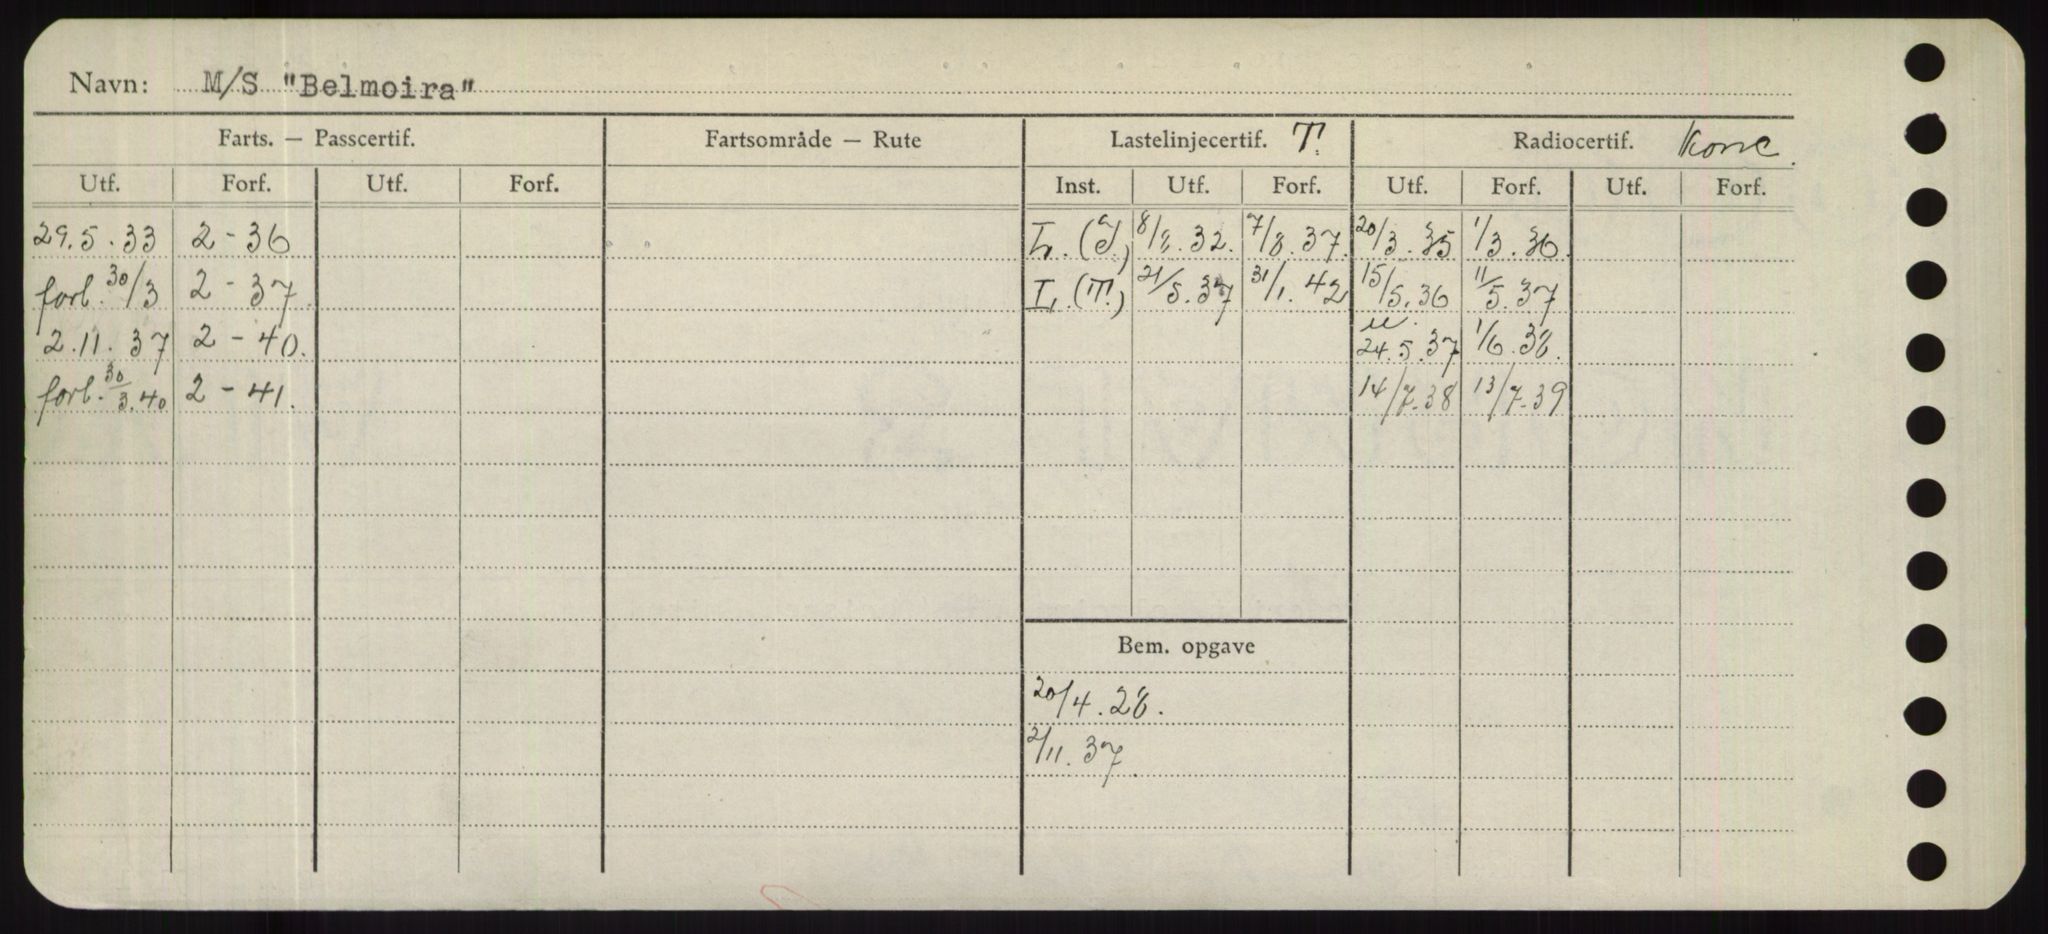 Navn: M/S "Belmoira"
Farts. — Passcertif. Fartsområde — Rute Lastelinjecertif. T. Radiocertif. Konc.
Utf. Forf. Utf. Forf. Inst. Utf. Forf. Utf. Forf. Utf. Forf.
29.5.33 2-36 L. (T.) 8/8.32. 7/8.37. 20/3.35 1/3.36.
forl. 30/3 2-37 L. (T.) 21/5.37 31/1.42 15/5.36 11/5.37
2.11.37 2-40. 24.5.37 1/6.38.
forl. 30/3.40 2-41. 14/7.38 13/7.39
Bem. opgave
20/4.28.
2/11.37